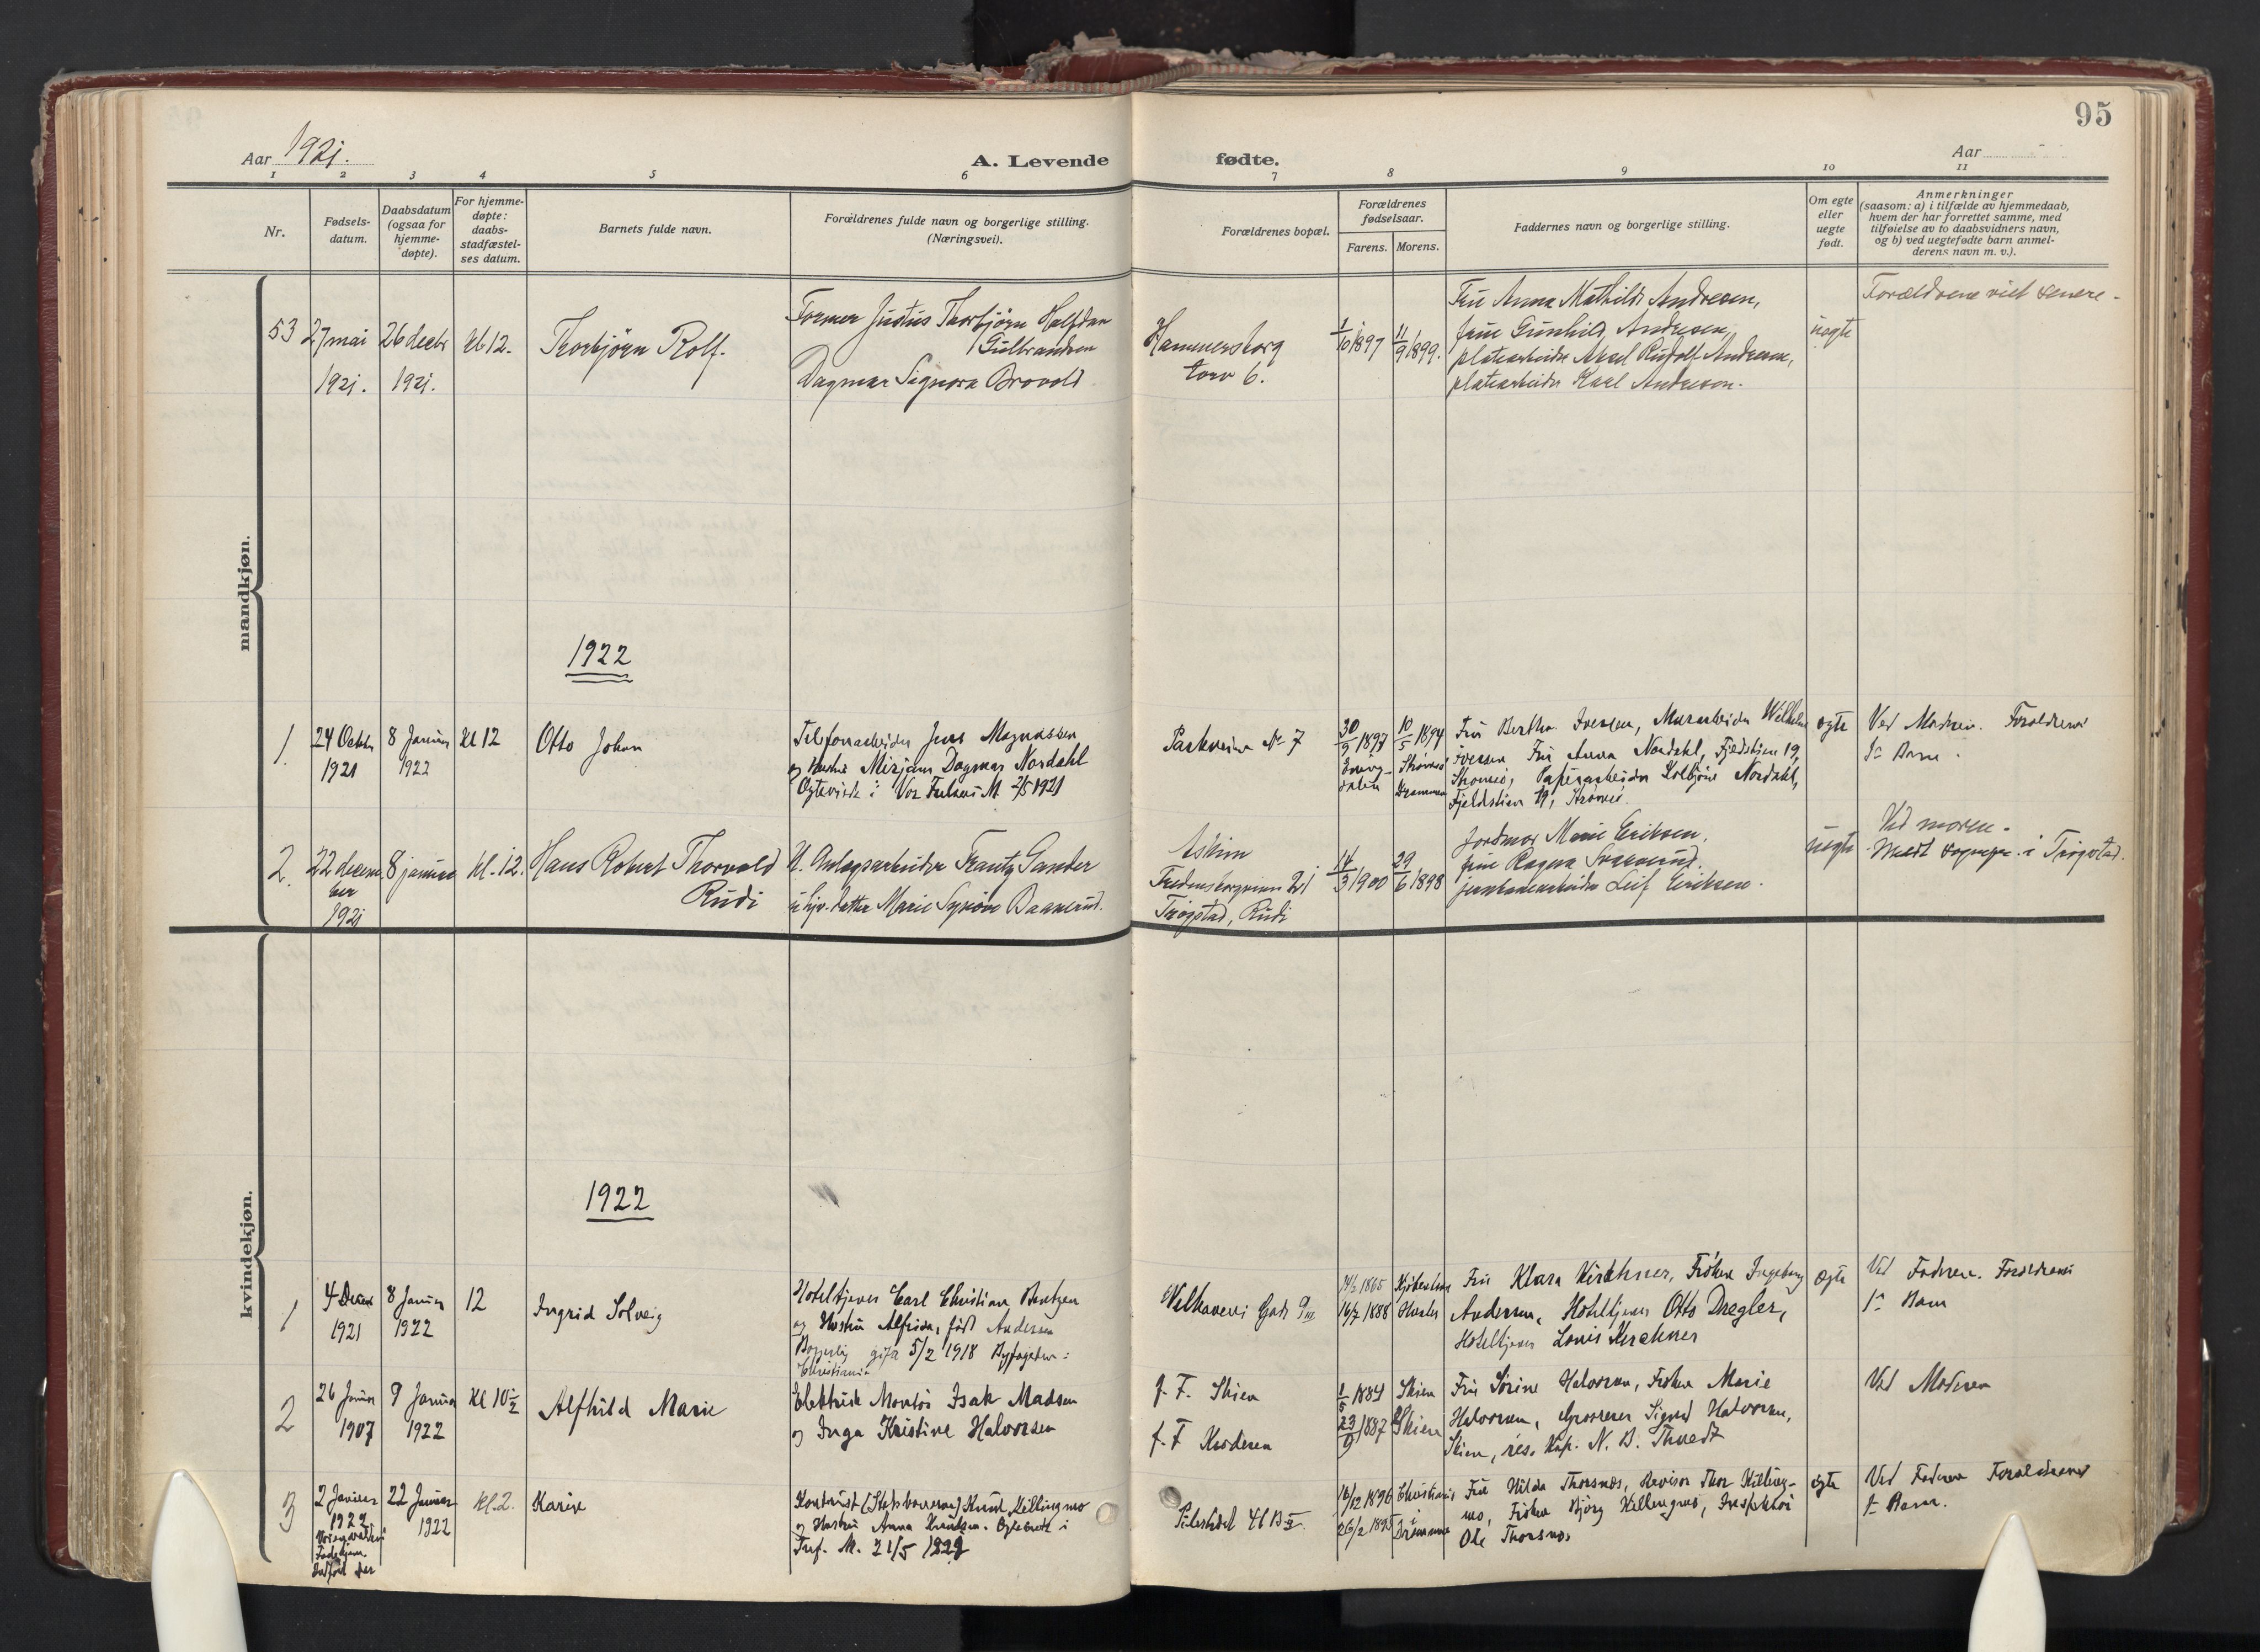 95
Aar 1921.
A. Levende fødte.
Aar
1 2 3 4 5 6 7 8 9 10 11
Nr.
Fødsels-
datum.
Daabsdatum
(ogsaa for
hjemme-
døpte).
For hjemme-
døpte:
daabs-
stadfæstel-
ses datum.
Barnets fulde navn.
Forældrenes fulde navn og borgerlige stilling.
(Næringsvei).
Forældrenes bopæl.
Forældrenes
fødselsaar.
Farens. Morens.
Faddernes navn og borgerlige stilling.
Om egte
eller
uegte
født.
Anmerkninger
(saasom: a) i tilfælde av hjemmedaab,
hvem der har forrettet samme, med
tilføielse av to daabsvidners navn,
og b) ved uegtefødte barn anmel-
derens navn m. v.).
mandkjøn.
53
27 mai
1921.
26 decbr
1921.
kl 12.
Thorbjørn Rolf.
Former Justus Thorbjørn Halfdan
Gulbrandsen
Dagmar Signora Brovold
Hammersborg
torv 6.
1/10 1897
11/9 1899.
Fru Anna Mathilde Andresen,
frue Gunhild Andresen,
platearbeider Aksel Rudolf Andresen,
platearbeider Karl Andresen.
uegte
Forældrene viet senere.
1922
1.
24 Octob
1921
8 Januar
1922
Kl 12
Otto Johan
Telefonarbeider Jens Magnussen
og Hustru Mirjam Dagmar Nordahl
Egteviede i Vor Frelsers M. 2/5 1921
Parkveien No 7
30/9 1897
10/5 1894
Strømsø
Drammen
Fru Berthe Iversen, Murarbeider Wilhelm
Iversen Fru Anna Nordahl, Fjeldstien 19,
Strømsø, Papirarbeider Kolbjørn Nordahl,
Fjeldstien 19, Strømsø.
egte
Ved Moderen. Forældrenes
1ste Barn.
2.
22 decem
ber
1921
8 januar
kl. 12.
Hans Robert Thorvald
Rudi
U. Anlægsarbeider Frantz Sander
u. hjv. datter Marie Synøve Baanerud.
Askim
Fredensborgveien 21
Trøgstad, Rudi
14/3 1900
29/6 1898
Jordmor Marie Eriksen,
frue Ragna
jernbanearbeider Leif Eriksen.
uegte
Ved moren.
Meldt sognepr. i Trøgstad.
kvindekjøn.
1922
1
4 Decem
1921
8 Januar
1922
12
Ingrid Solveig
Hoteltjener Carl Christian Bentzen
og Hustru Alfrida, født Andersen
Borgerlig gift 5/2 1918 Byfogden i
Christiania
14/2 1865
16/7 1888
Kjøbenhavn
Hvaler
Fru Klara Kirchner, Frøken Ingeborg
Andersen, Hoteltjener Otto Dregler,
Hoteltjener Louis Kirchner
egte
Ved Faderen. Forældrenes
1ste Barn
2
26 Januar
1907
9 Januar
1922
Kl 10½
Alfhild Marie
Elektrisk Montør Isak Madsen
og Inga Kristine Halvorsen
f. F. Skien
f. F Kroderen
1/5 1884
23/9 1887
Skien
Skien
Fru Sørine Halvorsen, Frøken Marie
Halvorsen, Grosserer Sigurd Halvorsen,
Skien, res. Kap. N. B. Tvedt
Ved Moderen
3
2 Januar
1922
22 Januar
1922
Kl. 2.
Karin
Kontorist (Statsbanerne) Knut Killingmo
og Hustru Anna Knutsen. Egteviede i
Tref. M. 21/5
Pilestrædet 41 B
16/12 1896
26/2 1895
Christiania
Drammen
Fru Hilda Thorsnes, Revisor Thor Killing-
mo, Frøken Bjørg Killingmo, Inspektør
Ole Thorsnes
egte
Ved Faderen Forældrenes
1ste Barn.